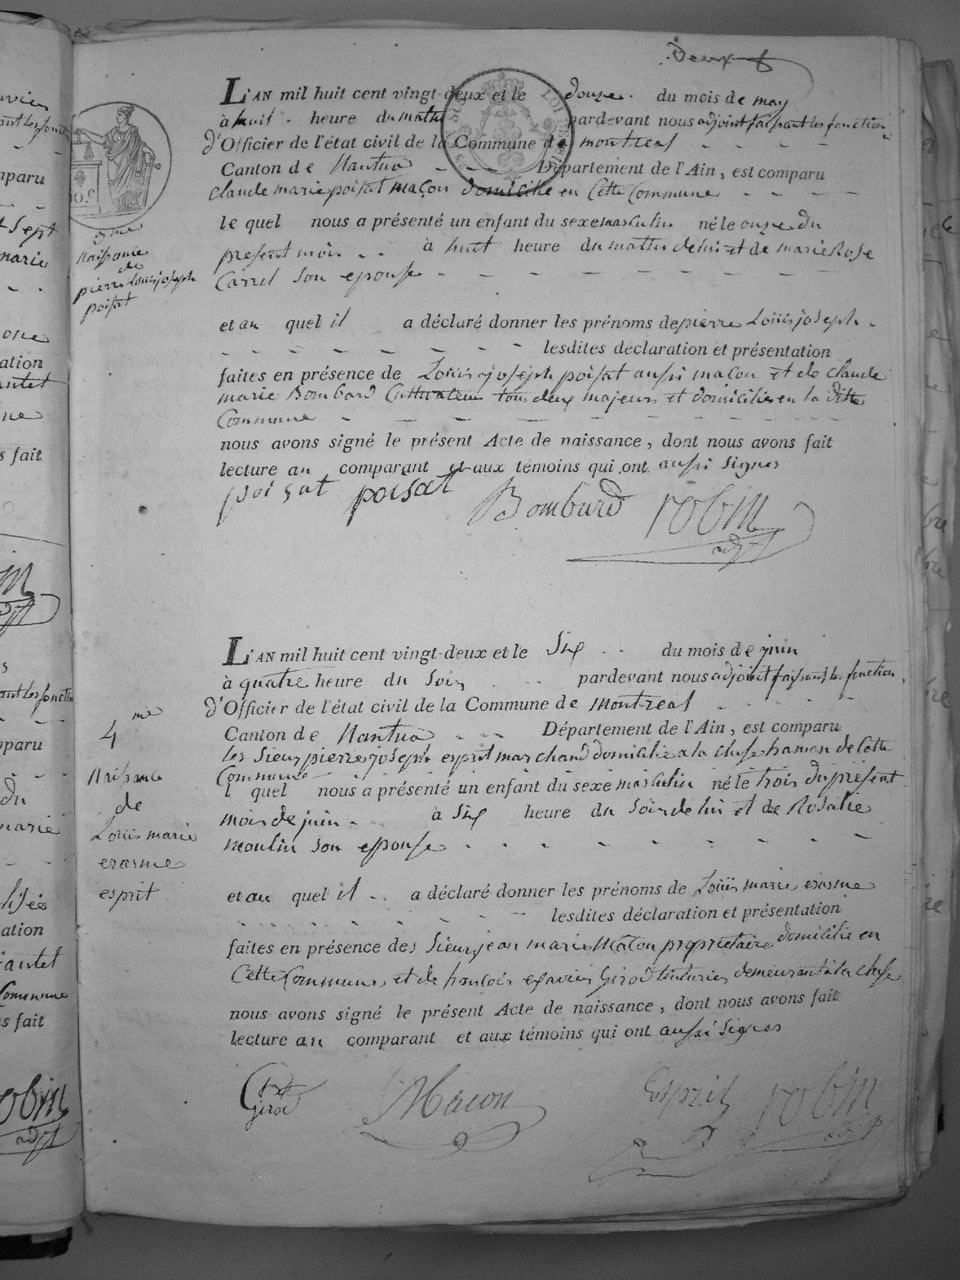 Deux f
L'AN mil huit cent vingt-deux et le douze. du mois de may
à huit. heure du matin pardevant nous adjoint faisant les fonction
d'Officier de l'état civil de la Commune de montreal
Canton de Nantua Département de l'Ain, est comparu
claude marie poisat maçon domicilié en Cette Commune
le quel nous a présenté un enfant du sexe masculin né le onze du
present mois à huit heure du matin de lui et de marie Rose
Carrel son epouse
et au quel il a déclaré donner les prénoms de pierre Louis joseph
lesdites déclaration et présentation
faites en présence de Louis joseph poisat aussi maçon et de claude
marie Bombard Cultivateur tous deux majeurs et domiciliés en la ditte
Commune
nous avons signé le présent Acte de naissance, dont nous avons fait
lecture au comparant et aux témoins qui ont aussi signes
poisat poisat Bombard robin
adjt
3me
Naissance
de
pierre Louis joseph
poisat
L'AN mil huit cent vingt-deux et le Six du mois de juin
à quatre heure du Soir pardevant nous adjoint faisant les fonction
d'Officier de l'état civil de la Commune de montreal
Canton de Nantua Département de l'Ain, est comparu
les Sieur pierre joseph esprit marchand domicilié a la Cluse hameau de Cette
Commune
l quel nous a présenté un enfant du sexe masculin né le trois du présent
mois de juin à Six heure du Soir de lui et de Rosalie
moulin son epouse
et au quel il a déclaré donner les prénoms de Louis marie erasme
lesdites déclaration et présentation
faites en présence des Sieur jean marie Macon propriétaire domicilié en
Cette Commune et de françois exavier Girod demeurant à la Cluse
nous avons signé le présent Acte de naissance, dont nous avons fait
lecture au comparant et aux témoins qui ont aussi signes
Girod Macon Esprit robin
adjt
4me
Naissance
de
Louis marie
erasme
esprit